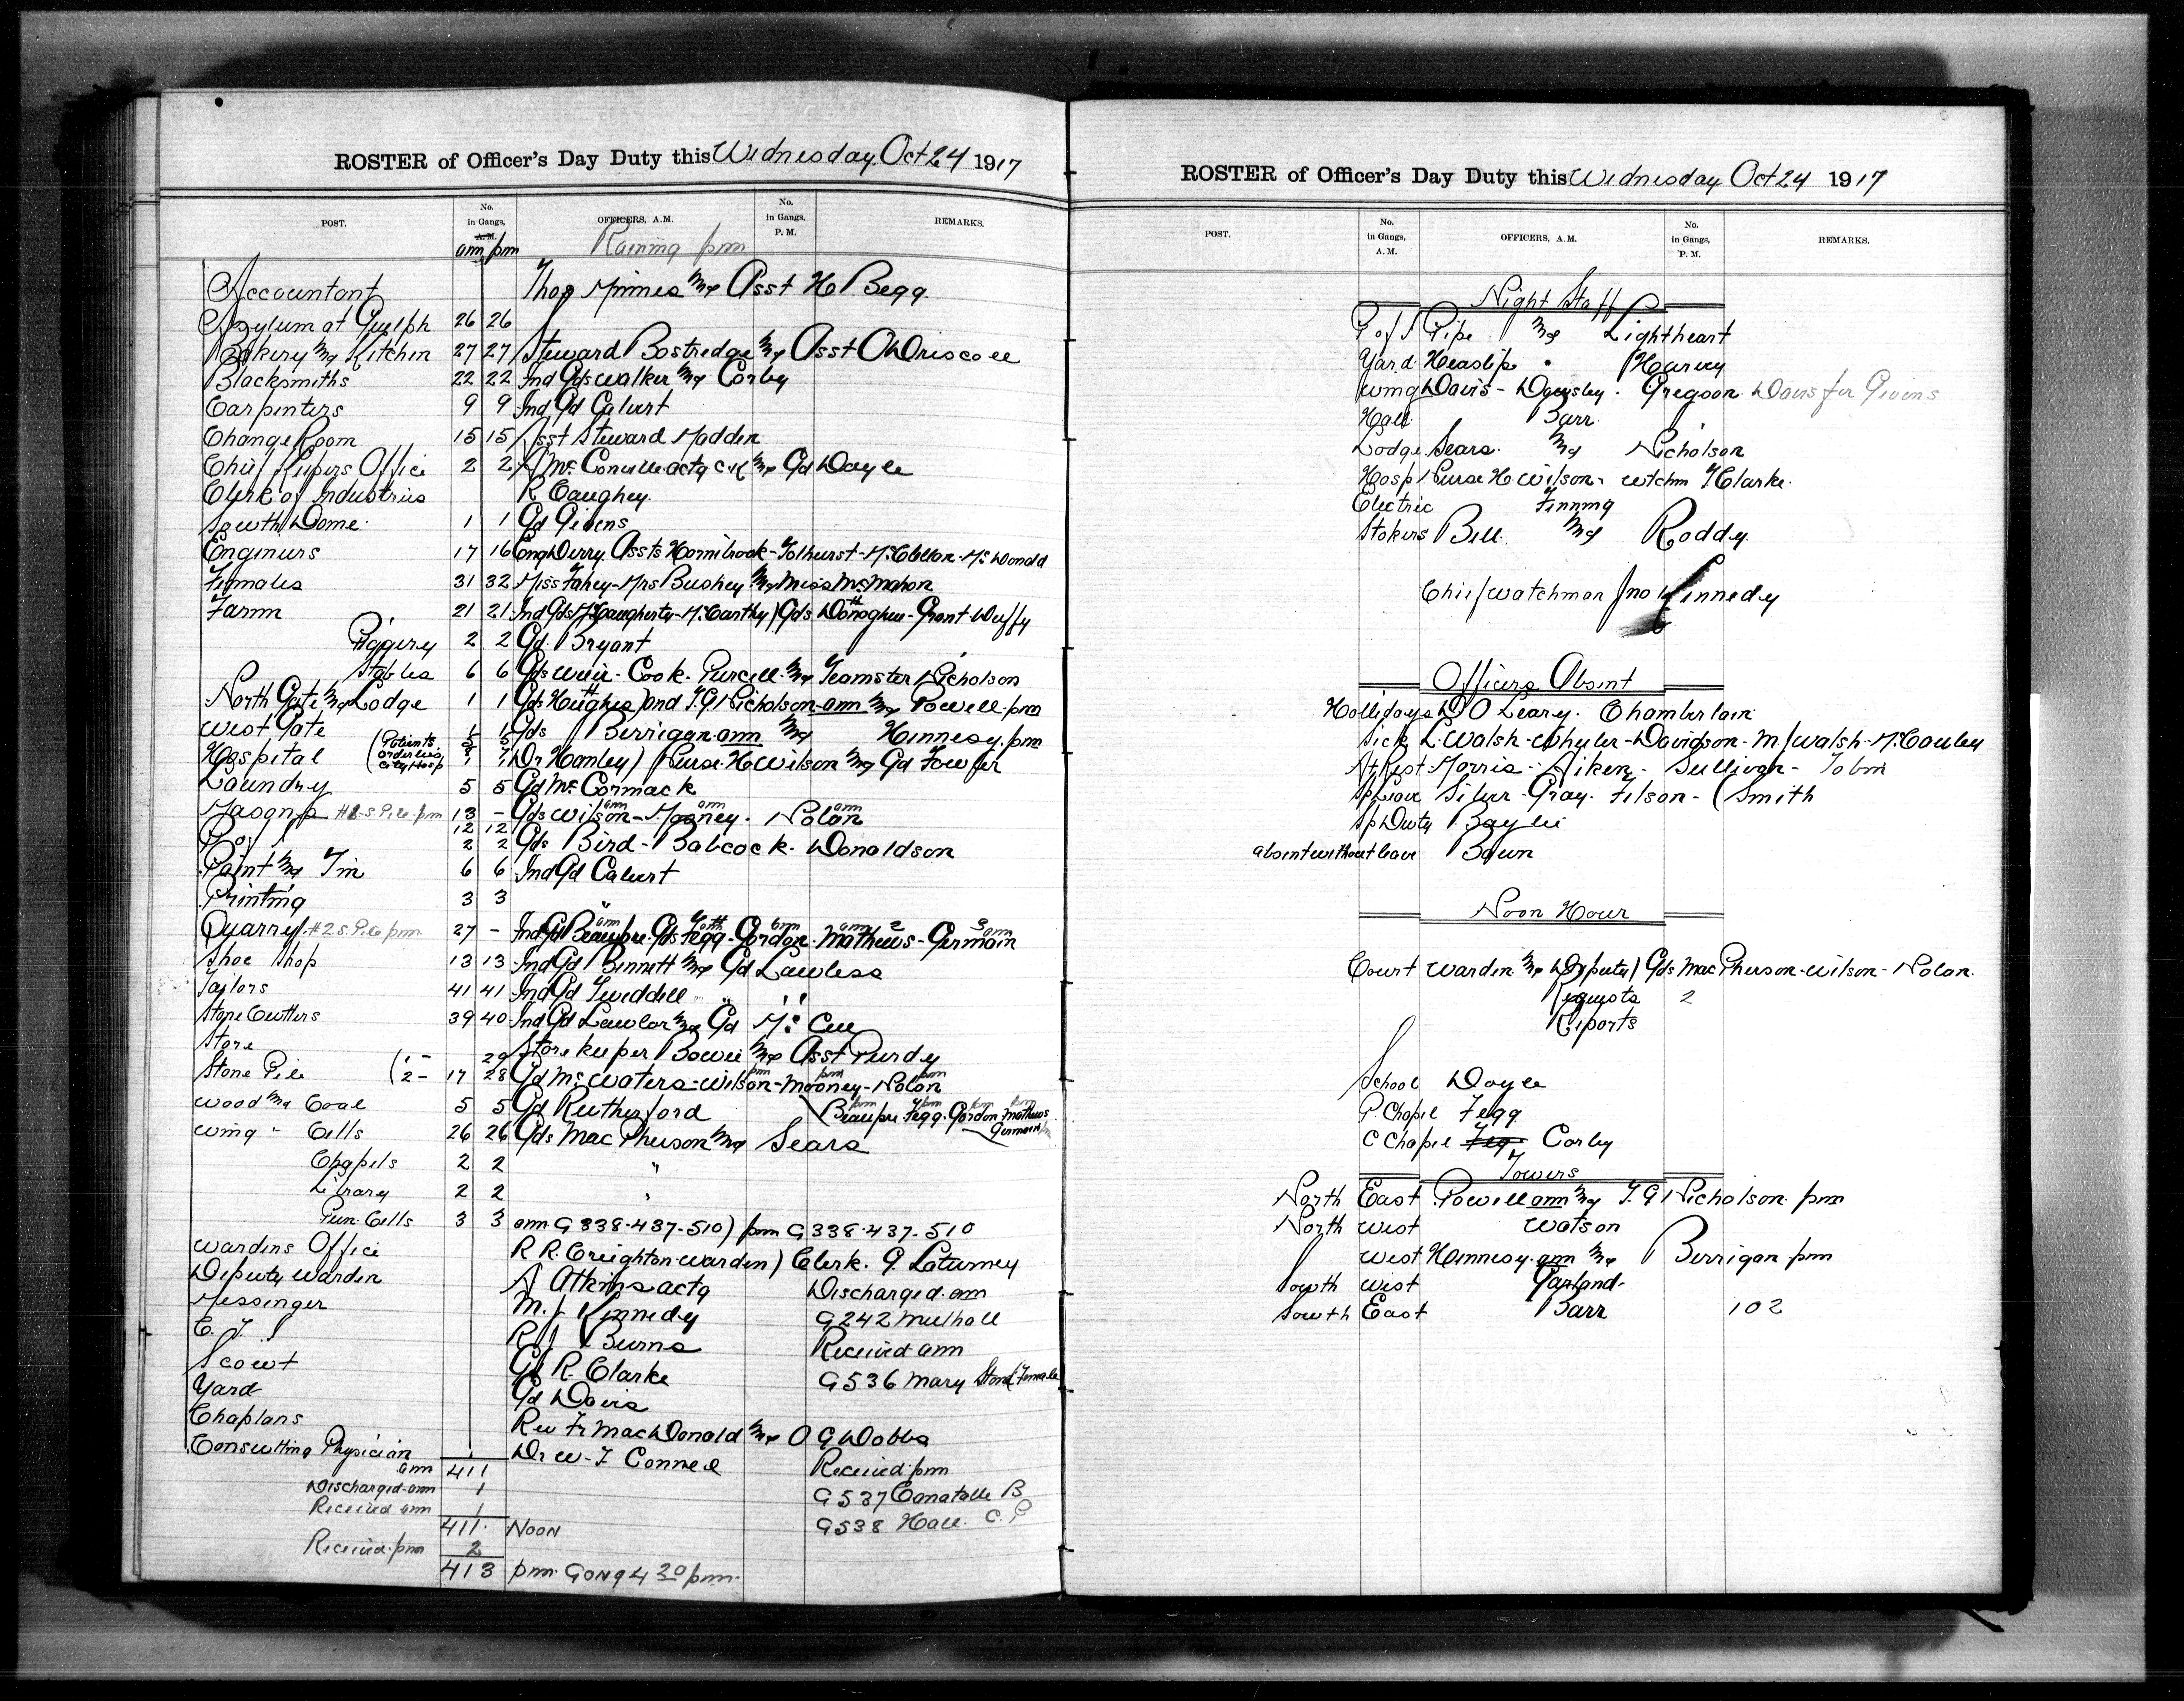 ROSTER of Officer's Day Duty this Wednesday Oct 24 1917
POST. No. in Gangs, A.M. OFFICERS, A.M. No. in Gangs, P. M. REMARKS.
am pm Raining pm
Accountant Thos Minnes and Asst H Begg
Asylum at Guelph 26 26
Bakery and Kitchen 27 27 Steward Bostredge and Asst O Driscoll
Blacksmiths 22 22 Ind Gds Walker and Corby
Carpenters 9 9 Ind Gd Calvert
Change Room 15 15 Asst Steward Madden
Chief Keepers Office 2 2 A McConville actg C K and Gd Doyle
Clerk of Industries R Caughey
South Dome 1 1 Gd Givens
Engineers 17 16 Eng Derry Assts Hornibrook - Tolhurst - McClellan - McDonald
Females 31 32 Miss Fahey - Mrs Bushey and Miss McMahon
Farm 21 21 Ind Gds McCaugherty - McCarthy) Gds Donoghue - Grant - Duffy
Piggery 2 2 Gd Bryant
Stables 6 6 Gds Weir - Cook - Purcell and Teamster Nicholson
North Gate and Lodge 1 1 Gds Hughes) and T.G Nicholson am and Powell pm
West Gate 1 1 Gds Berrigan am and Hennesy pm
Hospital (Patients orderlies City Hosp 5 5 Dr Hanley) Nurse H Wilson and Gd Fowler
Laundry 5 5 Gd McCormack
Masons #1 S Pile pm 13 - Gds Wilson am - Mooney am - Nolan am
12 12
2 2 Gds Bird - Babcock - Donaldson
Paint and Tin 6 6 Ind Gd Calvert
Printing 3 3 "
Quarry #2 S. Pile pm 27 - Ind Gd Beaupre am Gds Fegg - Gordon am - Mathews am - Germain am
Shoe Shop 13 13 Ind Gd Bennett and Gd Lawless
Tailors 41 41 Ind Gd Tweddell " "
Stone Cutters 39 40 Ind Gd Lawlor and Gd McCue
Store Storekeeper Bowie and Asst Purdy
Stone Pile (1 - 29
2 - 17 28 Gd McWaters - Wilson pm - Mooney pm - Nolan pm
Wood and Coal 5 5 Gd Rutherford Beaupre pm Fegg pm Gordon pm Mathews pm Germain pm
Wing " Cells 26 26 Gds MacPherson and Sears
Chapels 2 2 "
Library 2 2 "
Pun. Cells 3 3 am G 338 - 437 - 510) pm G 338 - 437 - 510
Wardens Office R R. Creighton Warden) Clerk. G. Laturney
Deputy Warden A Atkins actg Discharged am
Messinger M. J Kennedy G242 Mulhall
C. T. R J Burns Received am
Scout Gd R. Clarke G536 Mary Stone (Female
Yard Gd Davis
Chaplans Rev Fr MacDonald and O G Dobbs
Consulting Physician Dr W. T Connell Received pm
am 411
Discharged am 1 G537 B
Received am 1 G538 Hall C. P
411 Noon
Received pm 2
413 pm Gong 4 20 pm
ROSTER of Officer's Day Duty this Wednesday Oct 24 1917
POST. No. in Gangs, A.M. OFFICERS, A.M. No. in Gangs, P. M. REMARKS.
Night Staff
P of I Pipe and Lightheart
Yard Heaslip " Harvey
Wing Davis - Daughsley - Gregson Davis for Givens
Hall Barr
Lodge Sears and Nicholson
Hosp Nurse H. Wilson - Wtchm T Clarke
Electric Finning
Stokers Bell and Roddy
Chief Watchman Jno Kennedy
Officers Absent
Hollidays D O Leary - Chamberlain
Sick L. Walsh - Whyler - Davidson - M. J Walsh - McCauley
At Rest Morris - Aiken - Sullivan - Tobin
Sp Leave Silver - Gray - Filson - (Smith
Sp Duty Baylie
absent without leave Bawn
Noon Hour
Court Warden and Deputy) Gds MacPherson - Wilson - Nolan
Requests 2
Reports
School Doyle
P. Chapel Fegg
C Chapel Corby
Towers
North East Powell am and T.G Nicholson pm
North West Watson
West Hennesy am and Berrigan pm
South West Garland
South East Barr 102